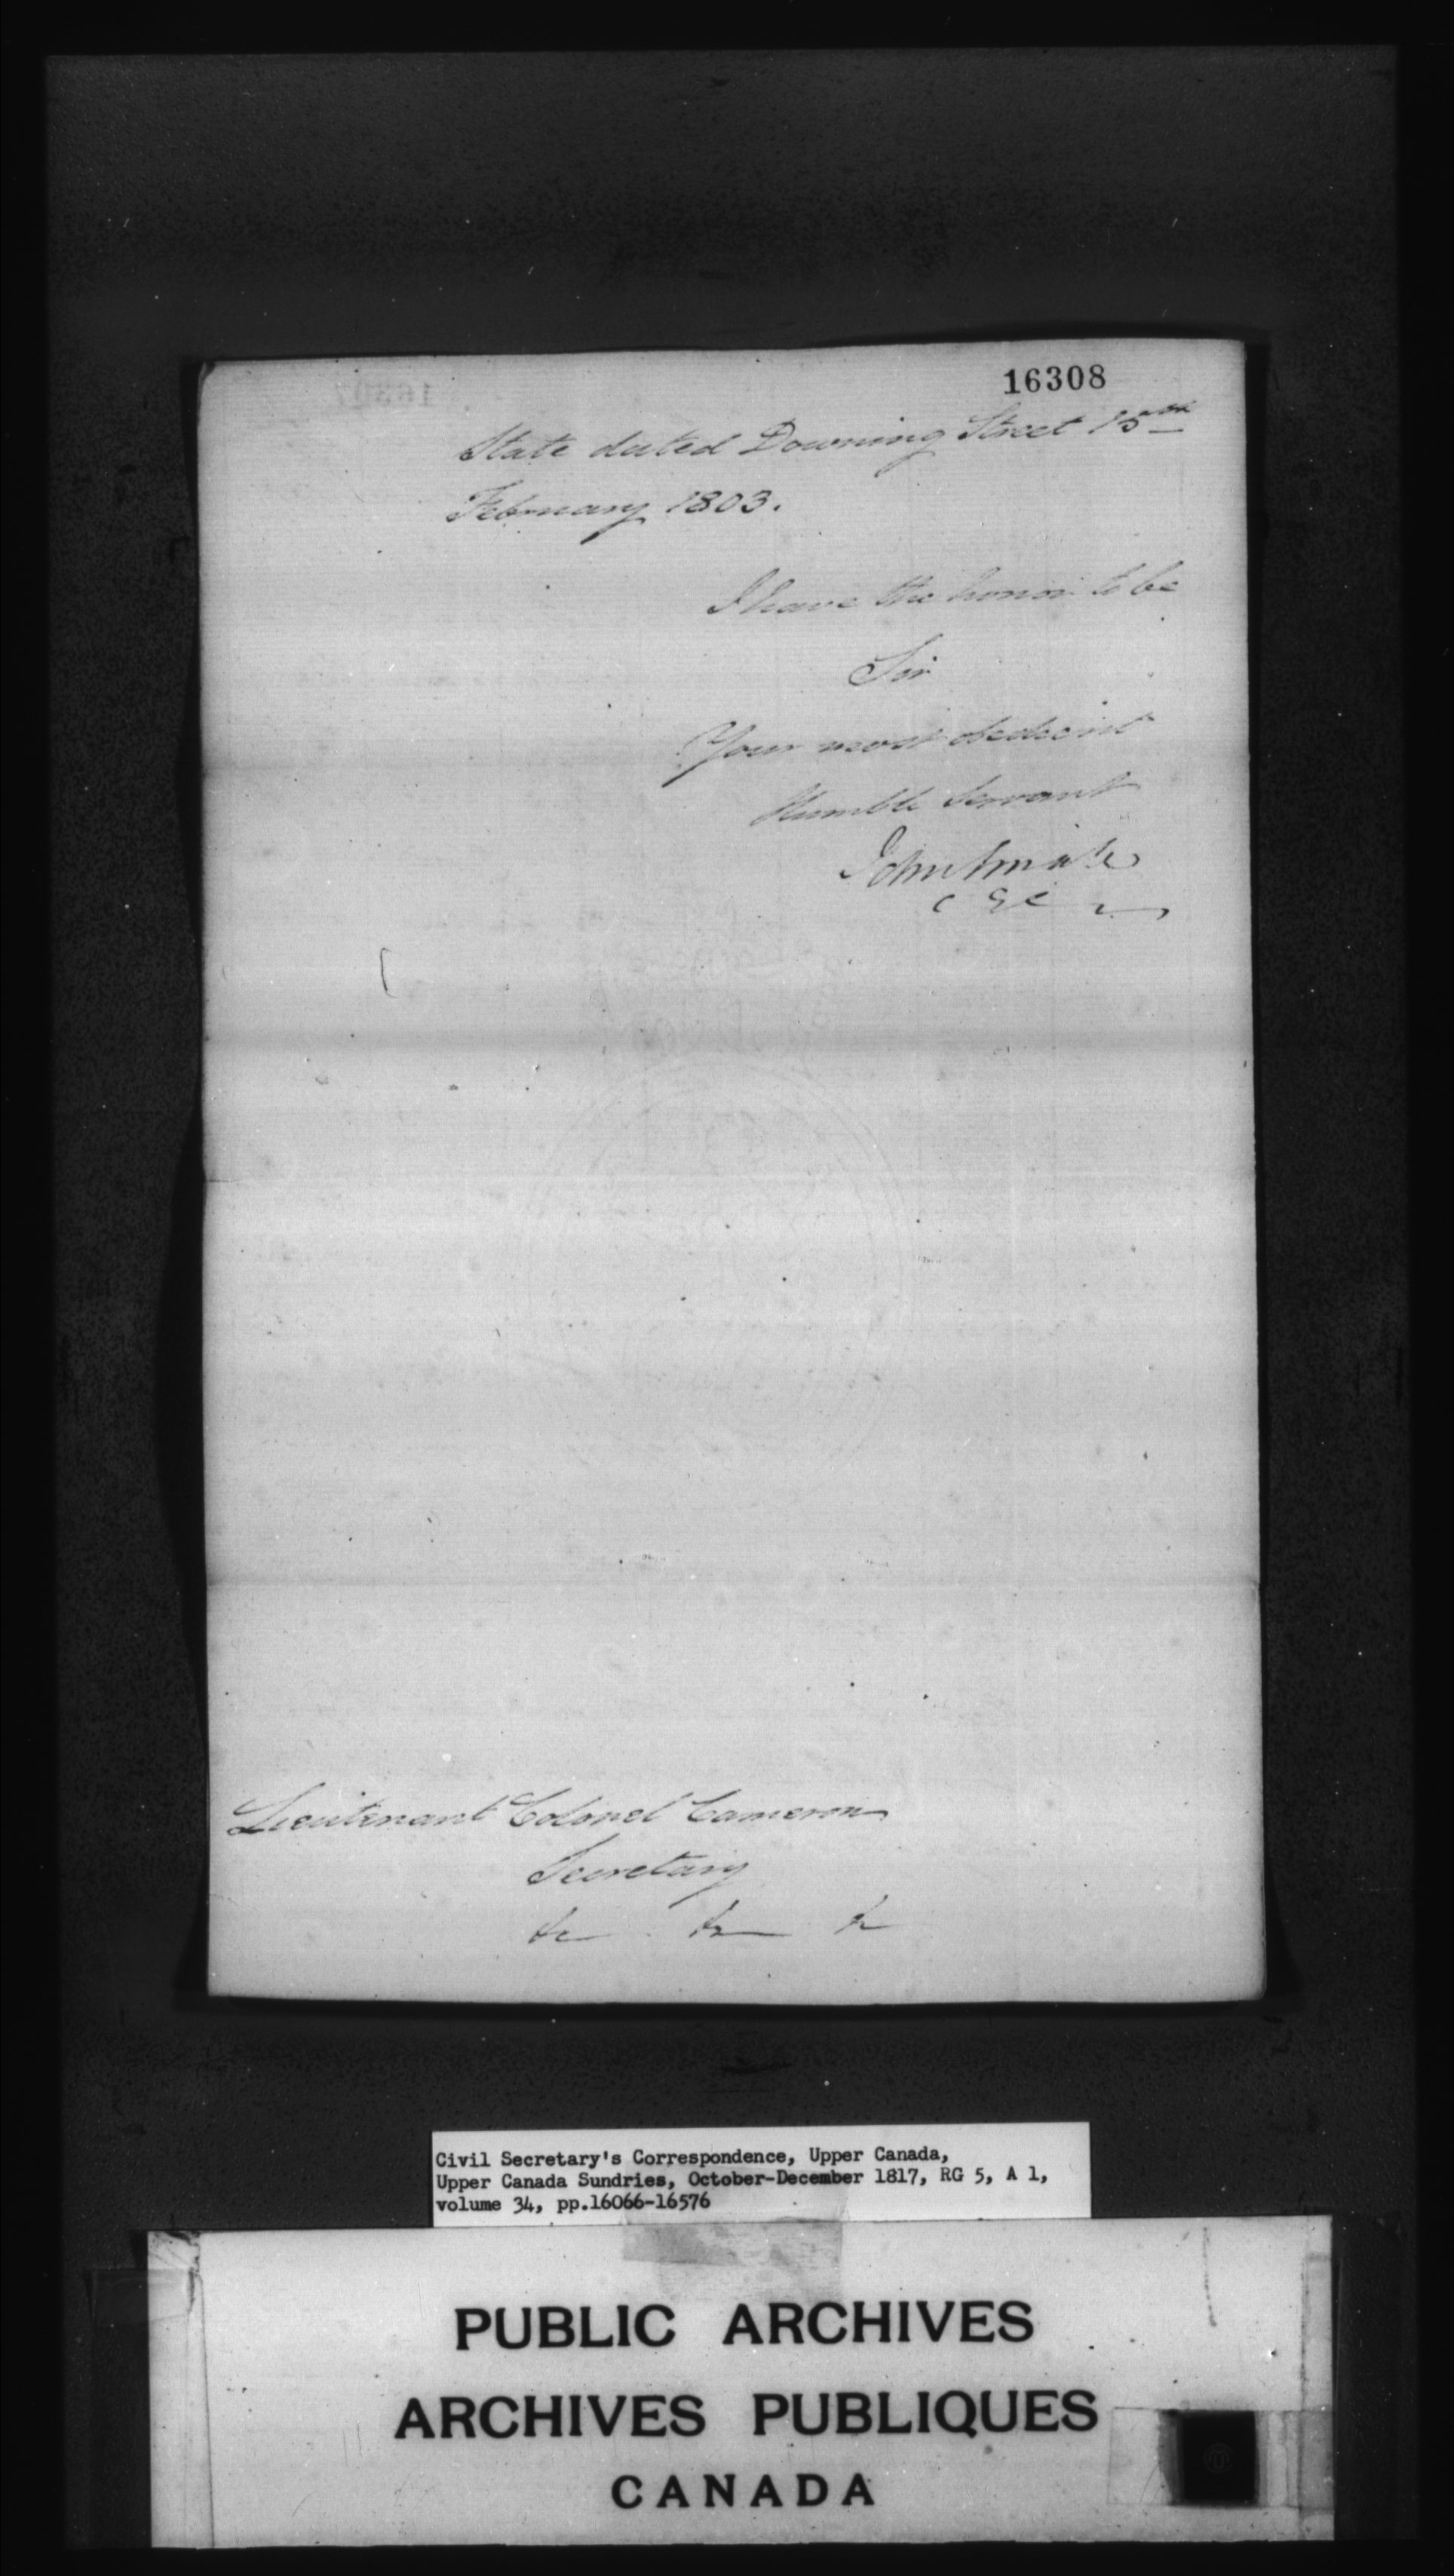 16308
State dated Downing Street 15th
February 1803.
I have the honor to be
Sir
Your most obedient
Humble Servant
John Small
C E C
Lieutenant Colonel Cameron
Secretary
&c &c &c
Civil Secretary's Correspondence, Upper Canada,
Upper Canada Sundries, October-December 1817, RG 5, A 1,
volume 34, pp.16066-16576
PUBLIC ARCHIVES
ARCHIVES PUBLIQUES
CANADA